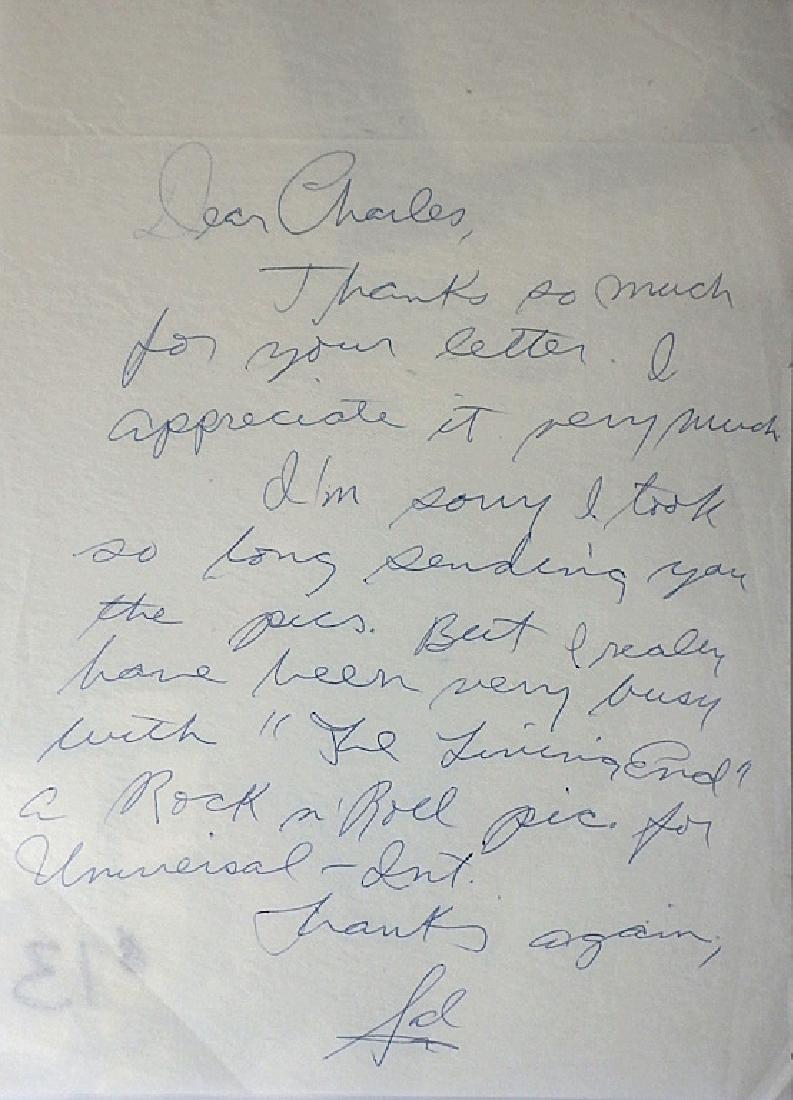 Dear Charles,
Thanks so much
for your letter. I
appreciate it very much
I'm sorry I took
so long sending you
the pics. But I really
have been very busy
with "The Living End"
a Rock n' Roll pic. for
Universal - Int.
Thanks again,
$13